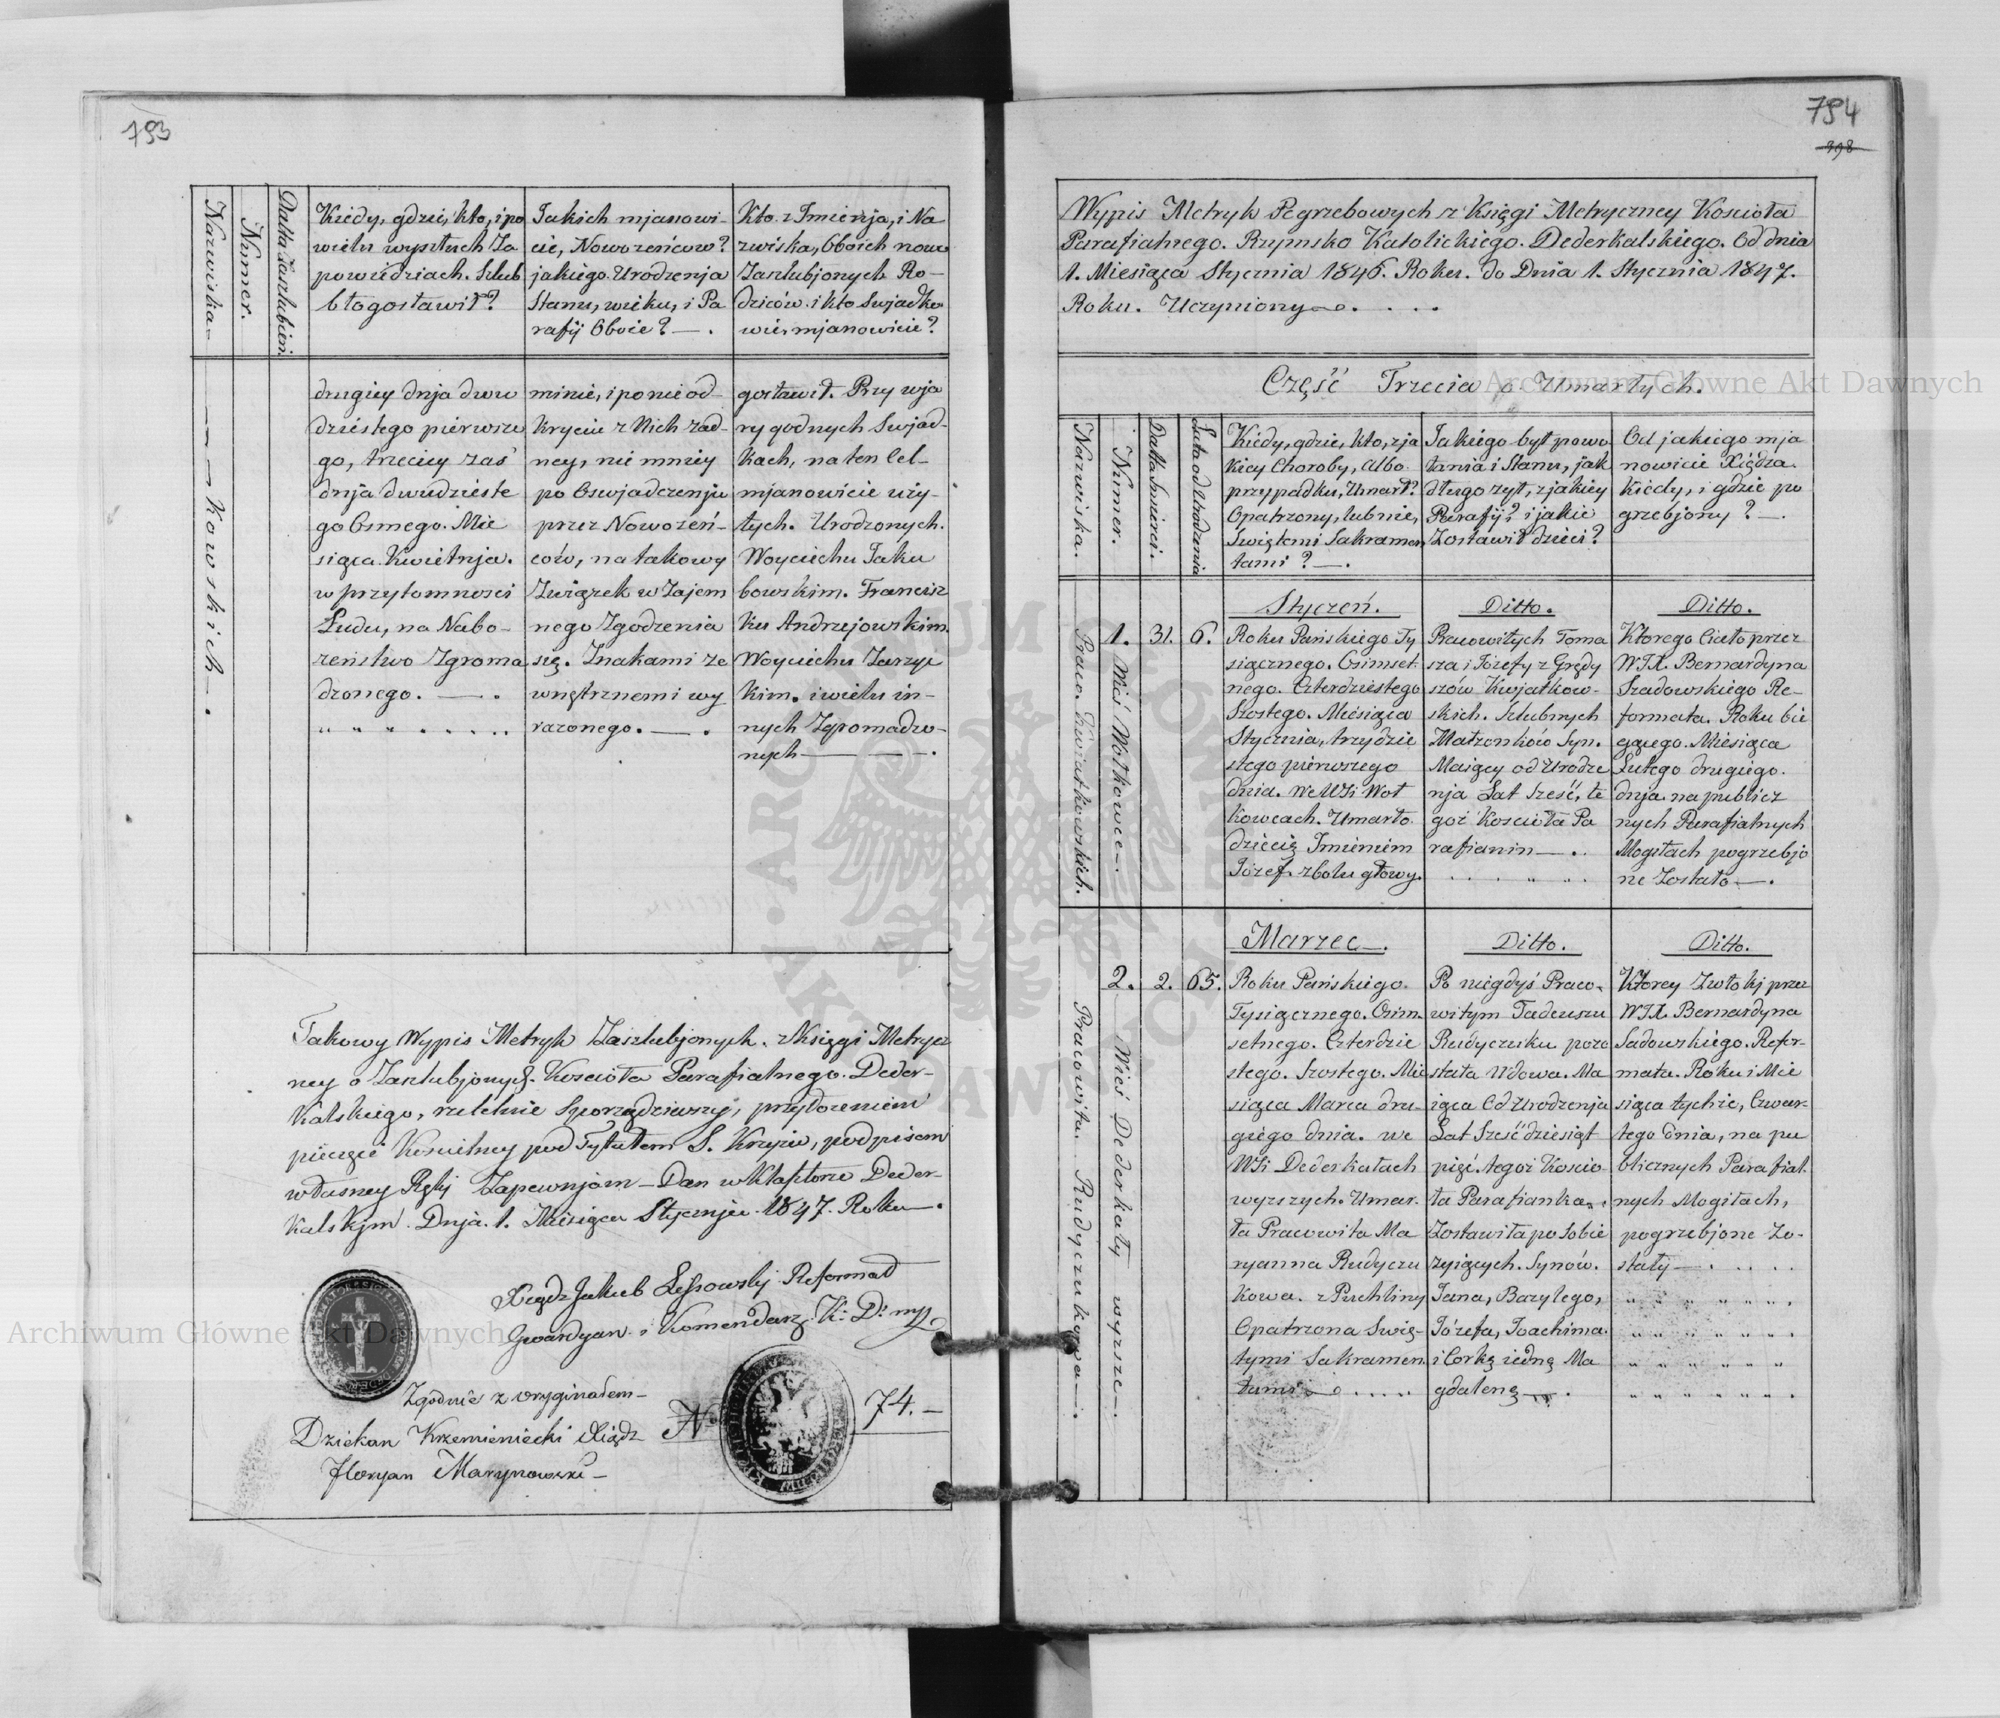 793
Nazwiska —
Numer.
Datta Zaszlubień.
Kiedy, gdzie, kto, i po
wielu wyszłych Za
powiedziach. Szlub
błogosławił?
Jakich mjanowi-
cie, Nowożeńcow?
jakiego Urodzenja
Stanu, wieku, i Pa
rafij Oboie? — .
Kto z Imienja, i Na
zwiska, Oboich nowo
Zaszlubjonych Ro-
dziców. i kto Swjadko-
wie, mjanowicie?
— — — kowskich — .
drugiey dnja dwu
dziestego pierwsze
go, trzeciey zaś
dnja dwudzieste
go Osmego. Mie
siąca Kwietnja.
w przytomnosci
Ludu, na Nabo-
żeństwo Zgroma
dzonego. — .
minie, i po nie od-
kryciu z Nich żad-
ney, nie mniey
po Oswjadczenju
przez Nowożeń-
ców, na takowy
Związek w Zajem
nego Zgodzenia
się. Znakami ze
wnętrznemi wy
rażonego. — .
gosławił. Przy wja
ry godnych Swjad-
kach, na ten Cel-
mjanowicie uży-
tych. Urodzonych.
Woyciechu Jaku
bowskim. Francisz
ku Andrzejowskim.
Woyciechu Zarzyc
kim. i wielu in-
nych Zgromadzo-
nych — .
Takowy Wypis Metryk Zaszlubjonych. z Księgi Metrycz
ney o Zaszlubjonych. Koscioła Parafialnego. Deder-
kalskiego, rzetelnie Sporządziwszy, przyłożeniem
pieczęci Koscielney pod Tytułem S. Krzyża, podpisem
własney Ręki Zapewnjam — Dan w Klasztorze Deder-
kalskjm. Dnja. 1. Miesiąca Stycznja. 1847. Roku — .
Xiądz Jakub Reformat
Gwardyan i Komendarz. K: D:
Zgodnie z oryginałem —
Dziekan Krzemieniecki Xiądz
Floryan Marynowski —
No 74. —
794
398
Wypis Metryk Pogrzebowych z Księgi Metryczney Kosciola
Parafialnego. Rzymsko Katolickiego. Dederkalskiego. Od dnia
1. Miesiąca Stycznia 1846. Roku. do Dnia 1. Stycznia 1847.
Roku. Uczyniony
Część Trzecia o Umarłych.
Nazwiska.
Numer.
Datta Smierci.
Lata od Urodzenia
Kiedy, gdzie, kto, z ja
kiey Choroby, albo
przypadku, Umarł?
Opatrzony, lub nie,
Swiętemi Sakramen
tami? — .
Jakiego był powo
łania i Stanu, jak
długo żył, z jakiey
Parafij? i jakie
Zostawił dzieci?
Od jakiego mja
nowicie Xiędza.
Kiedy, i gdzie po
grzebjony? — .
Praco. Kwiatkowskich.
1. Wieś Wołkowce — .
31.
6.
Styczeń.
Roku Pańskiego. Ty
siącznego. Osimset-
nego. Czterdziestego
Szostego. Miesiąca
Stycznia, trzydzie
stego pierwszego
dnia. We WSi Woł
kowcach. Umarło
dziecię Imieniem
Józef. z bolu głowy.
Ditto.
Pracowitych Toma
sza i Józefy z Grędy
szów Kwjatkow-
skich. Szlubnych
Małżonków Syn.
Maiący od Urodze
nja Lat Sześć, te
goż Kosciola Pa
rafianin — .
Ditto.
Którego Ciało przez
WJX. Bernardyna
Szadowskiego Re-
formata. Roku bie
gącego. Miesiąca
Lutego drugiego.
dnja na publicz
nych Parafialnych
Mogiłach pogrzebjo
ne Zostało — .
Pracowita. Rudyczukowa — .
2. Wieś Dederkały wyższe — .
2.
65.
Marzec — .
Roku Pańskiego.
Tysiącznego. Osim-
setnego. Czterdzie
stego. Szostego. Mie
siąca Marca dru-
giego dnia. we
WSi Dederkałach
wyższych. Umar-
ła Pracowita Ma
ryanna Rudyczu
kowa. z Puchliny
Opatrzona Swię-
tymi Sakramen
tami
Ditto.
Po niegdyś Praco-
witym Tadeuszu
Rudyczuku pozo
stała Wdowa. Ma
iąca Od Urodzenja
Lat Sześćdziesiąt
pięć tegoż Koscio-
ła Parafianka.
Zostawiła po Sobie
żyiących. Synów.
Jana, Bazylego,
Józefa, Joachima.
i Corkę iedną Ma
gdalenę — .
Ditto.
Ktorey Zwłokj przez
WJX. Bernardyna
Sadowskiego. Refor-
mata. Roku i Mie
siąca tychże, Czwar-
tego dnia, na pu
blicznych Parafial-
nych Mogiłach,
pogrzebjone Zo-
stały — .
Archiwum Główne Akt Dawnych
Archiwum Główne Akt Dawnych